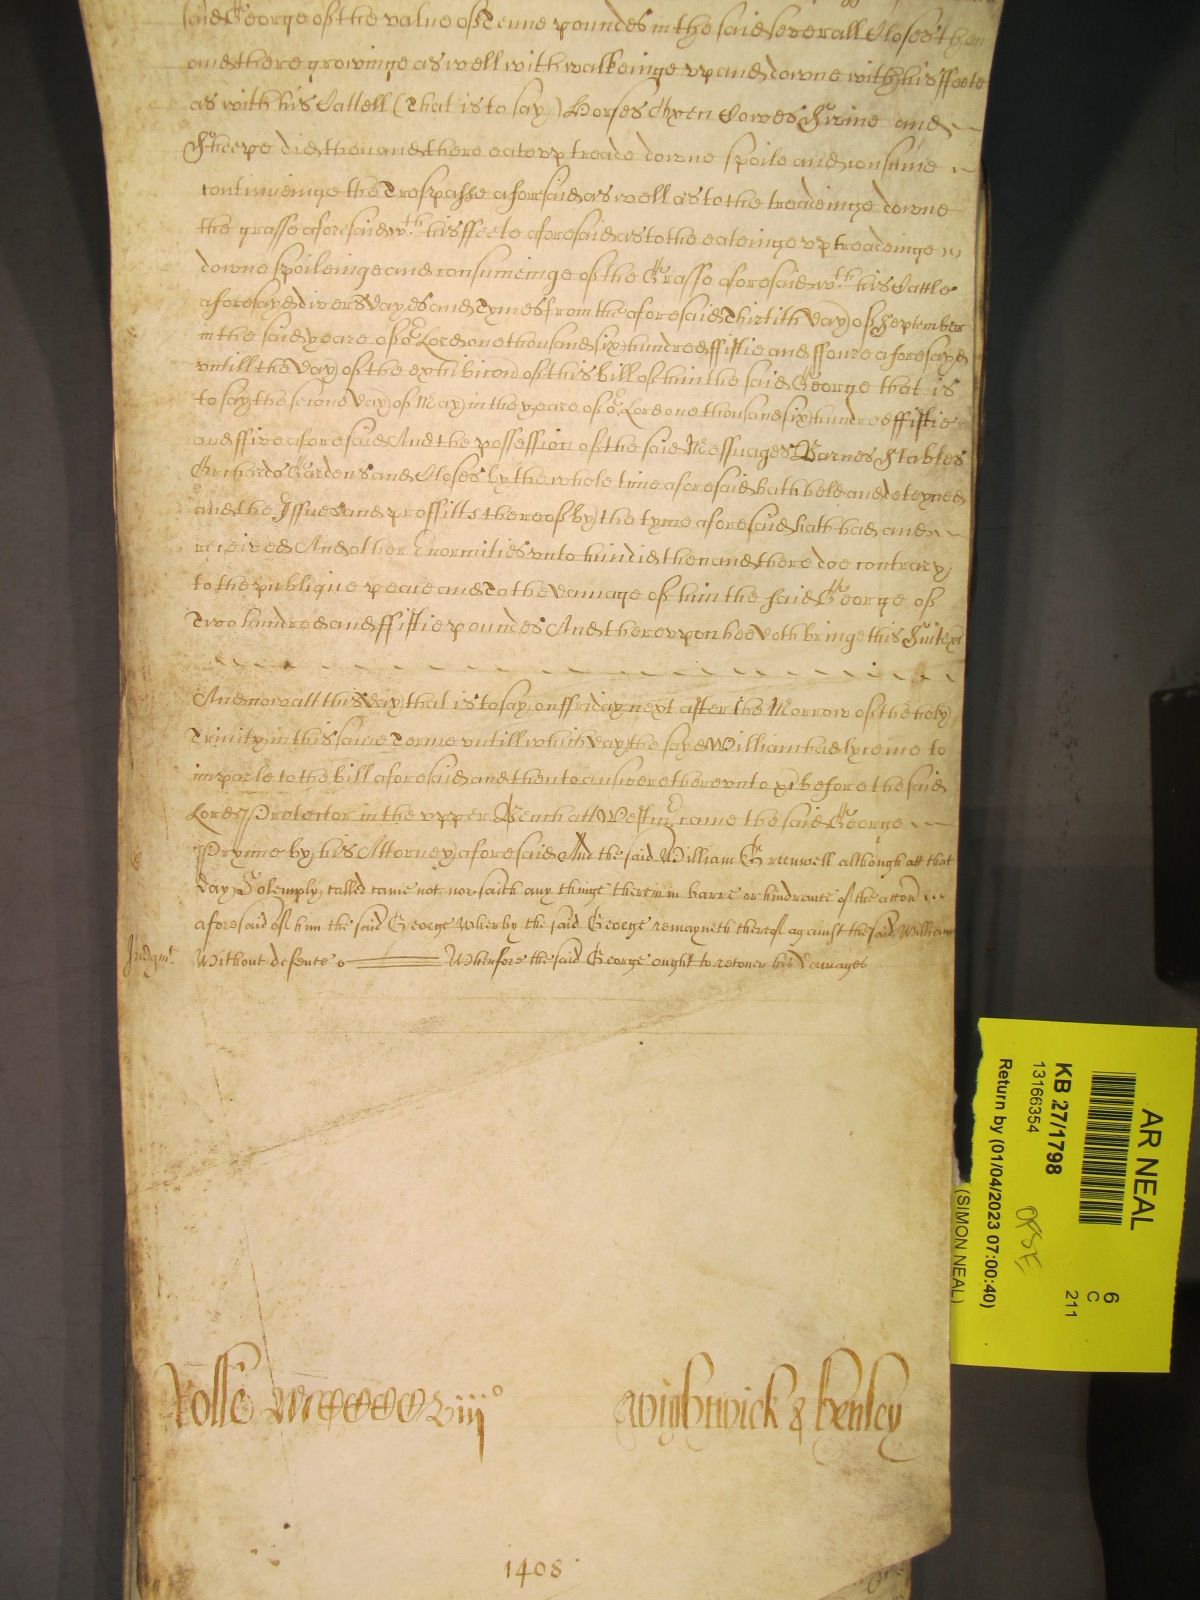 said George of the value of Tenne poundes in the said severall Closes then
and there growinge as well with walkeinge vp and downe with his ffeete
as with his Cattell (That is to say) Horses Oxen Cowes Swine and
Sheepe did then and there eate vp treade downe spoile and consume
continueinge the Trespasse aforesaid as well as to the treadeinge downe
the grasse aforesaid wth his ffeete aforesaid as to the eateinge vp treadeinge
downe spoileinge and consumeinge of the Grasse aforesaid wth his Cattle
aforesayd divers dayes and Tymes from the aforesaid Thirtith day of September
in the said yeare of or Lord one thousand six hundred ffiftie and ffoure aforesayd
vntill the day of the exhibicon of this bill of him the said George that is
to say the second day of May in the yeare of or Lord one thousand six hundred ffiftie
and ffive aforesaid And the possession of the said Messuages Barnes Stables
Orchards Gardens and Closes by the whole time aforesaid hath held and deteyned
and the Issues and proffitts thereof by the tyme aforesaid hath had and
received And other Enormities vnto him did then and there doe contrary
to the publique peace and To the damage of him the said George of
Two hundred and ffiftie poundes And therevpon hee doth bringe this Suite &c
And now att this day that is to say on ffriday next after the Morrow of the holy
Trinity in this same Terme vntill which day the sayd William had lycence to
imparle to the bill aforesaid and then to answere therevnto &c before the said
Lord Protector in the vpper Bench att Westm came the said George
Pryme by his Attorney aforesaid And the said William Greenwell although att that
day Solemply called came not nor saith any thinge therein in barre or hindrance of the accon
aforesaid of him the said George Wherby the said George remayneth therof against the said William
Judgmt. Without defence Wherfore the said George ought to recover his damages
Rolle MCCCCviijo Wightwick & henley
1408
AR NEAL
KB 27/1798
13166354
Return by (01/04/2023 07:00:40)
(SIMON NEAL)
6
C
211